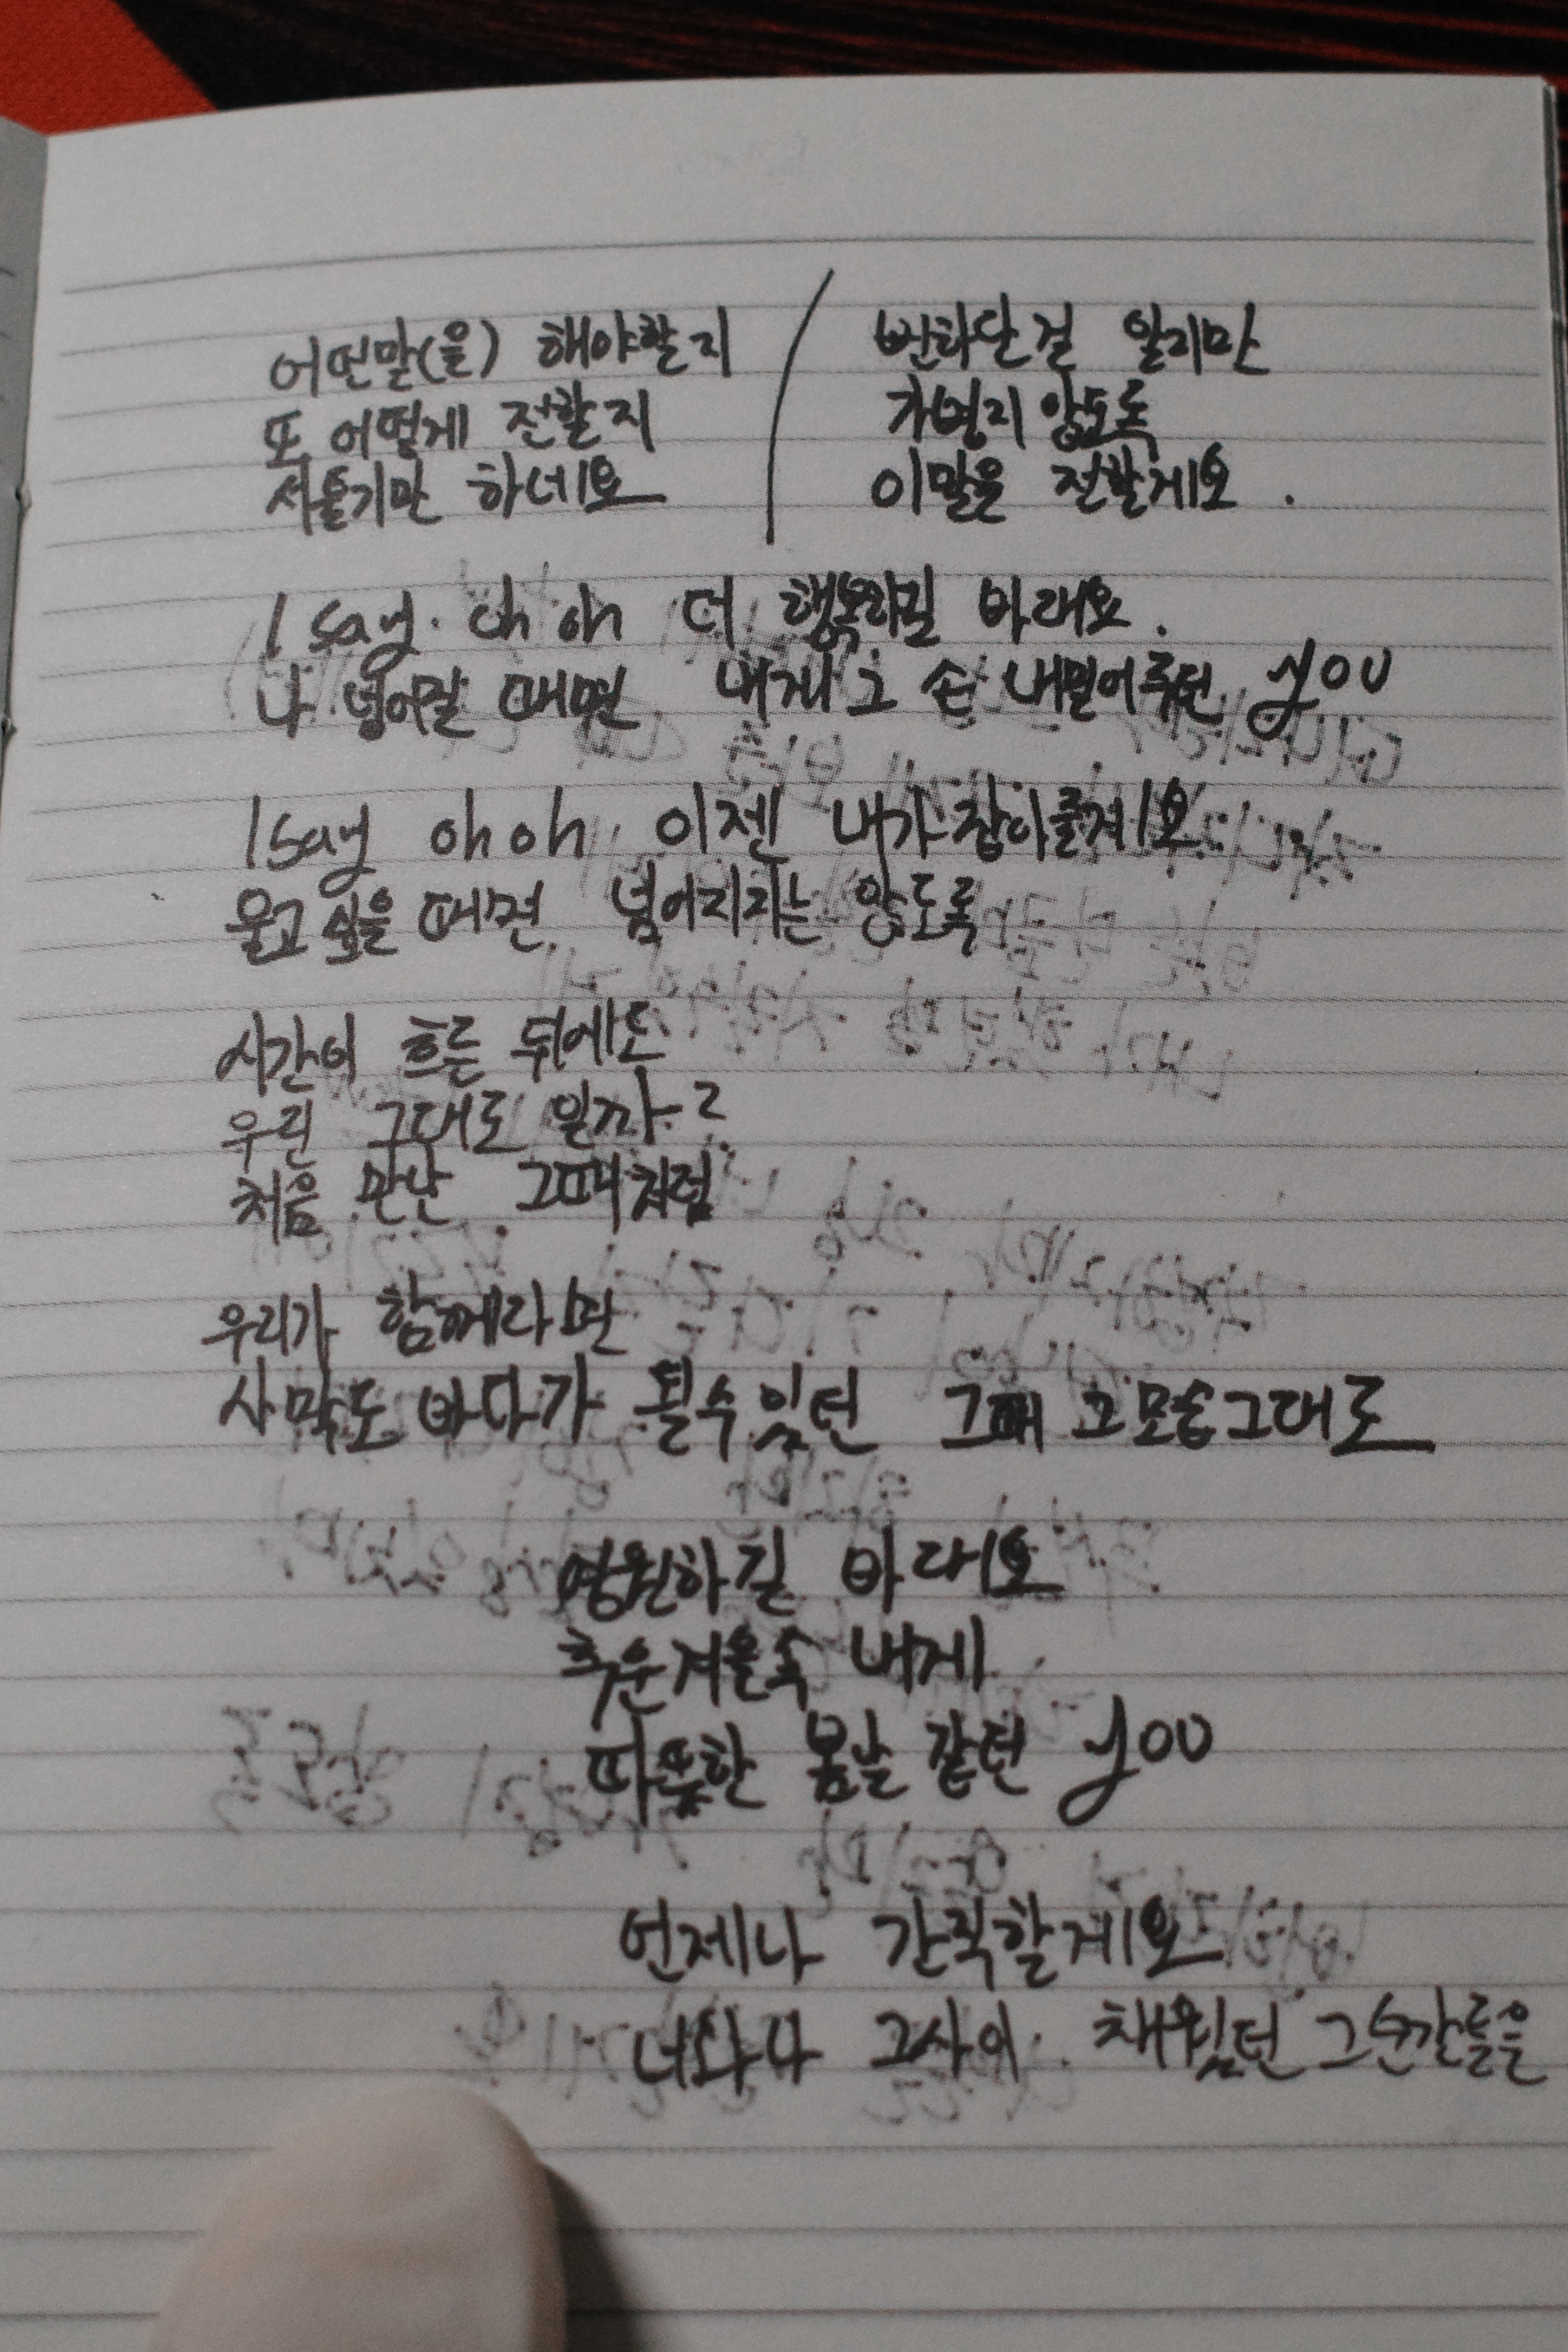 어떤말(을) 해야할지
또 어떻게 전할지
서툴기만 하네요
뻔하단걸 알지만
가볍지 않도록
이말을 전할게요.
I say. oh oh 더 행복하길 바래요.
나 넘어질 때면 내게 그 손 내밀어주던 you
I say oh oh 이젠 내가 잡아줄게요
울고 싶을 때면 넘어지지는 않도록
시간이 흐른 뒤에도
우린 그대로 일까?
처음 만난 그때처럼
우리가 함께라면
사막도 바다가 될수있던 그때 그모습그대로
영원하길 바래요
추운겨울속 내게
따뜻한 봄날 같던 you
언제나 간직할게요
너와나 그사이 채워있던 그순간들을